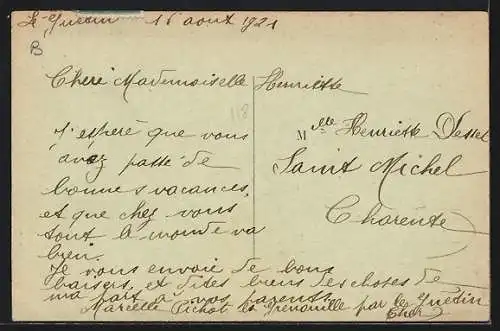 Le Guétin 16 aout 1921
B
Chere Mademoiselle Henriette
118
J'espère que vous
avez passé de
bonnes vacances
et que chez vous
tout le monde va
bien.
Je vous envoie de bons
baisers, et dites bien des choses de
ma part à vos parents.
Marcelle Pichot la Grenouille par le Guétin
Cher
Mlle Henriette Desset
Saint Michel
Charente